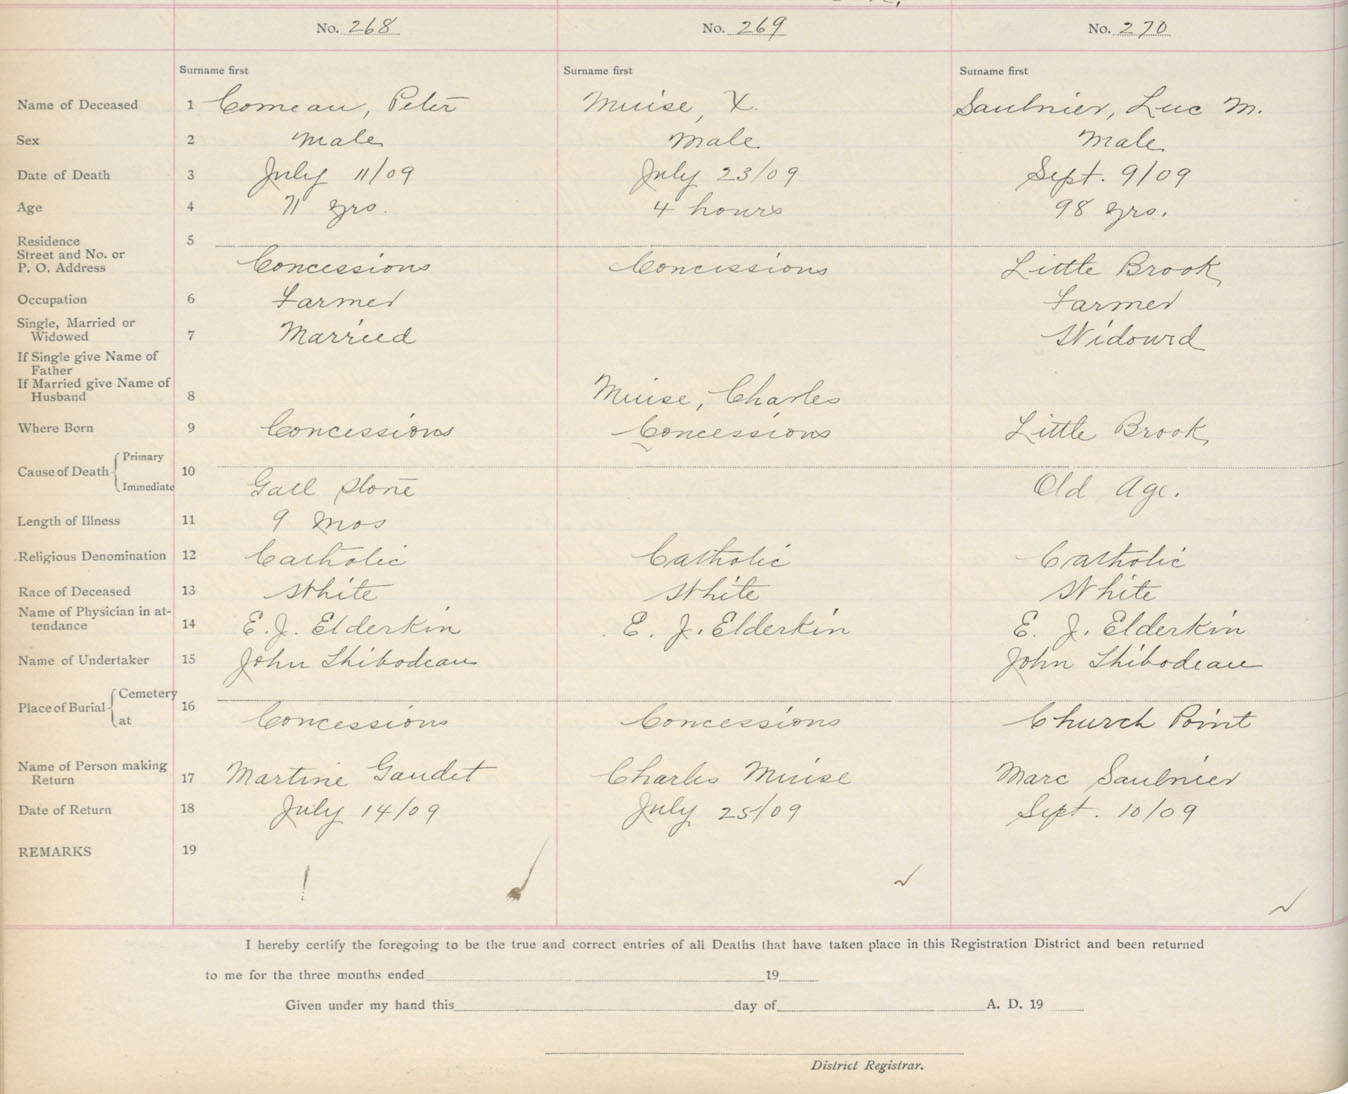 No. 268 No. 269 No. 270
Surname first Surname first Surname first
Name of Deceased 1 Comeau, Peter Muise, X. Saulnier, Luc M.
Sex 2 Male Male Male
Date of Death 3 July 11/09 July 23/09 Sept. 9/09
Age 4 71 yrs. 4 hours 98 yrs.
Residence 5
Street and No. or
P. O. Address Concessions Concessions Little Brook
Occupation 6 Farmer Farmer
Single, Married or
Widowed 7 Married Widowed
If Single give Name of
Father
If Married give Name of
Husband 8 Muise, Charles
Where Born 9 Concessions Concessions Little Brook
Primary
Cause of Death 10
Immediate Gall stone Old Age.
Length of Illness 11 9 mos
Religious Denomination 12 Catholic Catholic Catholic
Race of Deceased 13 White White White
Name of Physician in at-
tendance 14 E. J. Elderkin E. J. Elderkin E. J. Elderkin
Name of Undertaker 15 John Thibodeau John Thibodeau
Cemetery
Place of Burial 16
at Concessions Concessions Church Point
Name of Person making
Return 17 Martine Gaudet Charles Muise Marc Saulnier
Date of Return 18 July 14/09 July 25/09 Sept. 10/09
REMARKS 19
I hereby certify the foregoing to be the true and correct entries of all Deaths that have taken place in this Registration District and been returned
to me for the three months ended 19
Given under my hand this day of A. D. 19
District Registrar.